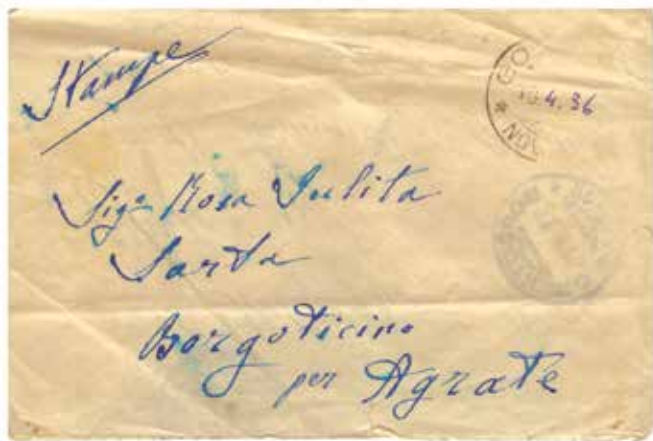 Stampe
4.36
Sigª Rosa Julita
Sarta
Borgoticino
per Agrate